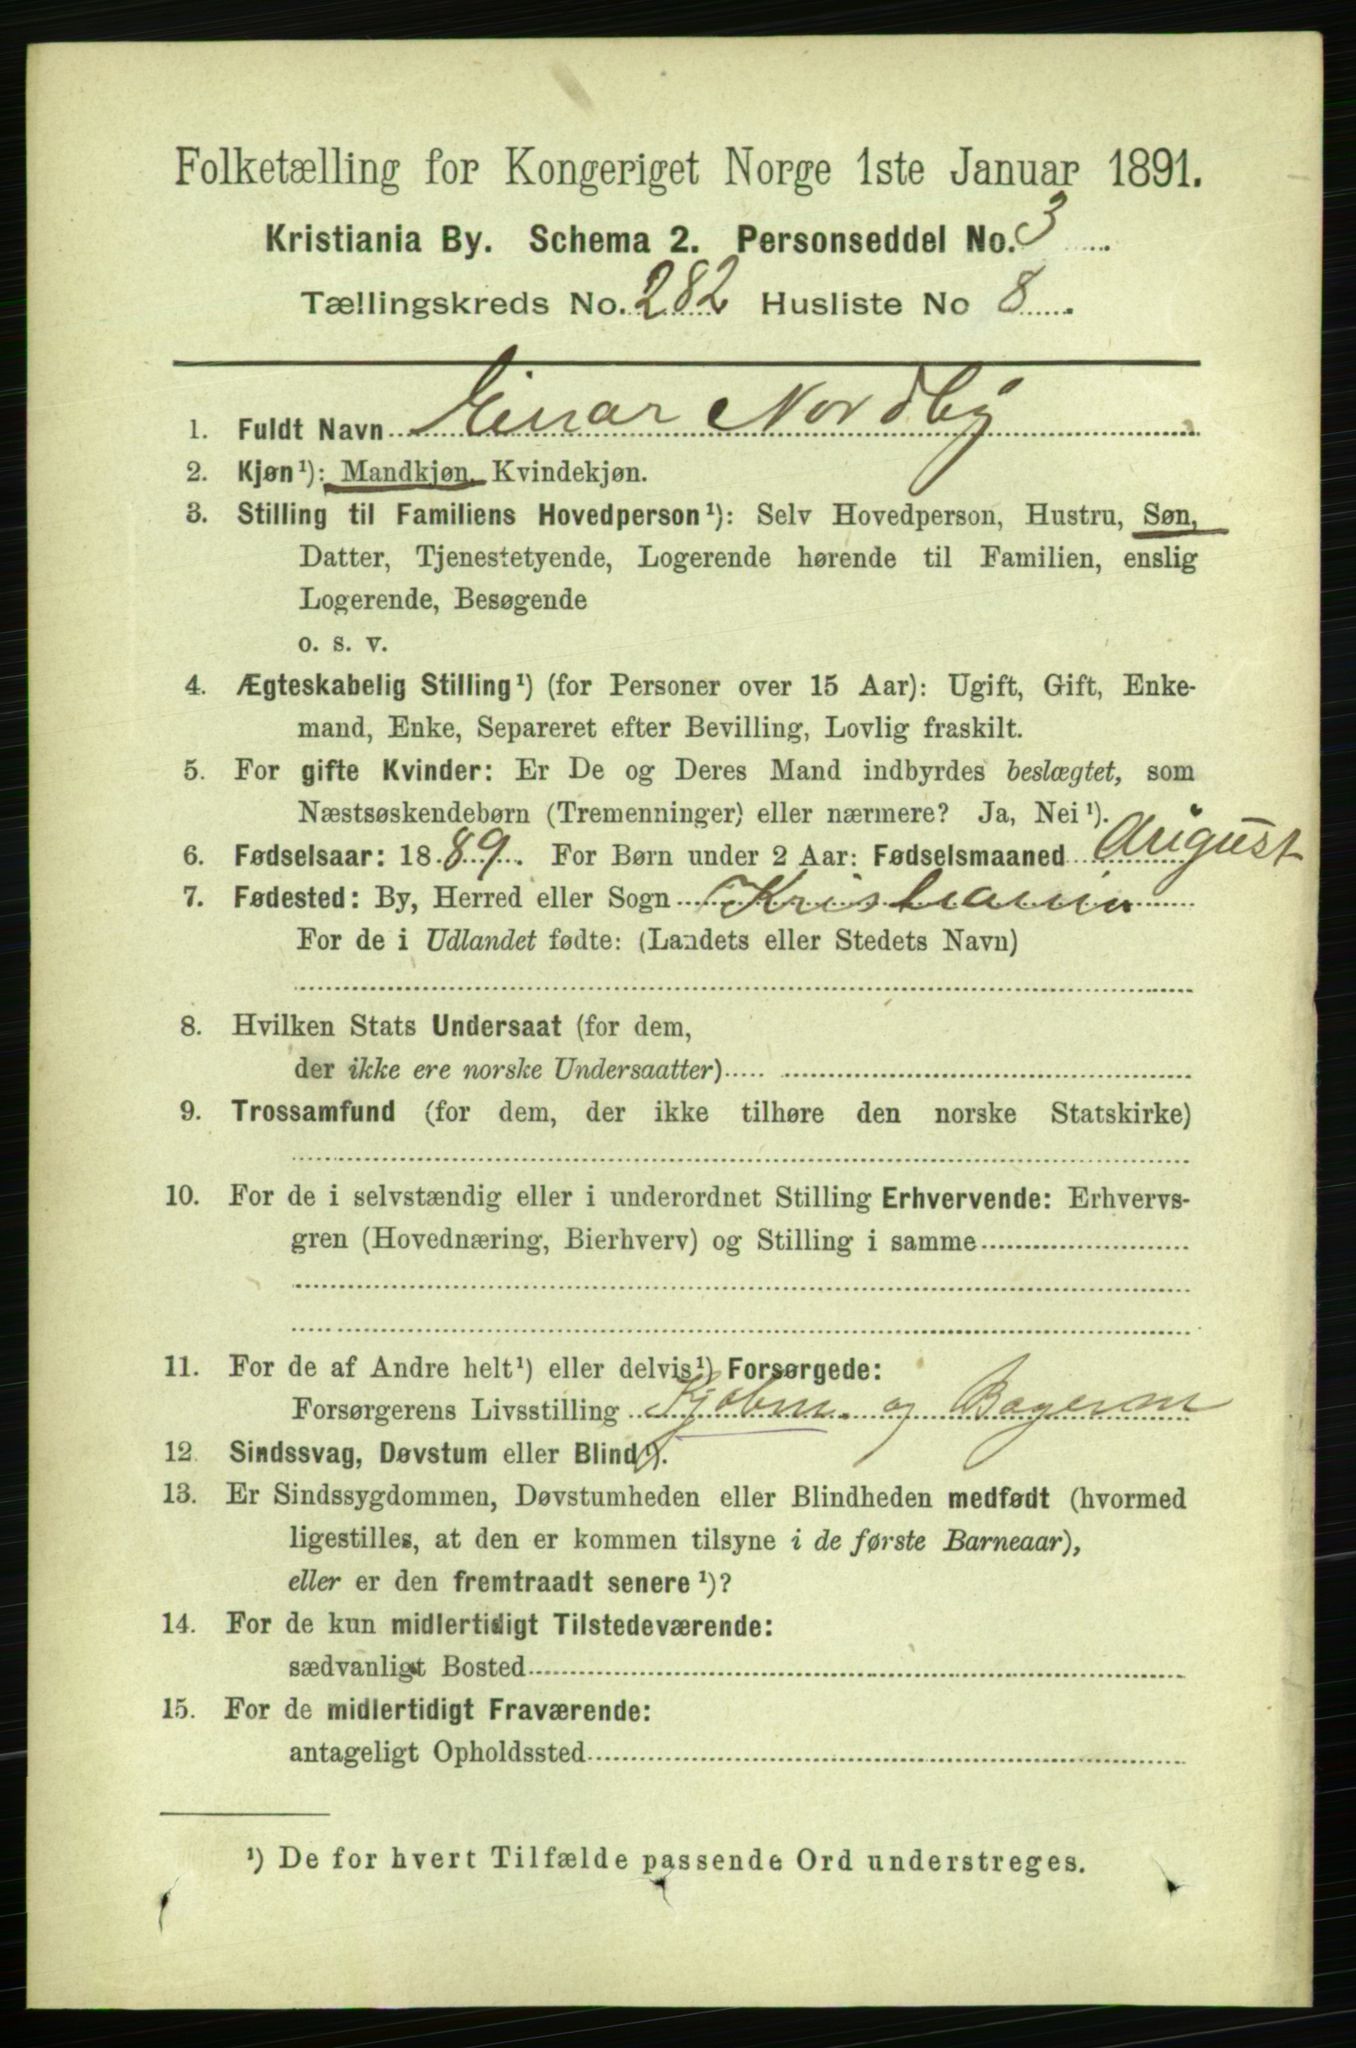 Folketælling for Kongeriget Norge 1ste Januar 1891.
Kristiania By. Schema 2. Personseddel No. 3
Tællingskreds No. 282 Husliste No 8
1. Fuldt Navn Einar Nordby
2. Kjøn¹): Mandkjøn, Kvindekjøn.
3. Stilling til Familiens Hovedperson¹): Selv Hovedperson, Hustru, Søn,
Datter, Tjenestetyende, Logerende hørende til Familien, enslig
Logerende, Besøgende
o. s. v.
4. Ægteskabelig Stilling¹) (for Personer over 15 Aar): Ugift, Gift, Enke-
mand, Enke, Separeret efter Bevilling, Lovlig fraskilt.
5. For gifte Kvinder: Er De og Deres Mand indbyrdes beslægtet, som
Næstsøskendebørn (Tremenninger) eller nærmere? Ja, Nei¹).
6. Fødselsaar: 1889. For Børn under 2 Aar: Fødselsmaaned August
7. Fødested: By, Herred eller Sogn Kristiania
For de i Udlandet fødte: (Landets eller Stedets Navn)
8. Hvilken Stats Undersaat (for dem,
der ikke ere norske Undersaatter)
9. Trossamfund (for dem, der ikke tilhøre den norske Statskirke)
10. For de i selvstændig eller i underordnet Stilling Erhvervende: Erhvervs-
gren (Hovednæring, Bierhverv) og Stilling i samme
11. For de af Andre helt¹) eller delvis¹) Forsørgede:
Forsørgerens Livsstilling Kjøbm. og
12. Sindssvag, Døvstum eller Blind¹).
13. Er Sindssygdommen, Døvstumheden eller Blindheden medfødt (hvormed
ligestilles, at den er kommen tilsyne i de første Barneaar),
eller er den fremtraadt senere¹)?
14. For de kun midlertidigt Tilstedeværende:
sædvanligt Bosted
15. For de midlertidigt Fraværende:
antageligt Opholdssted
¹) De for hvert Tilfælde passende Ord understreges.